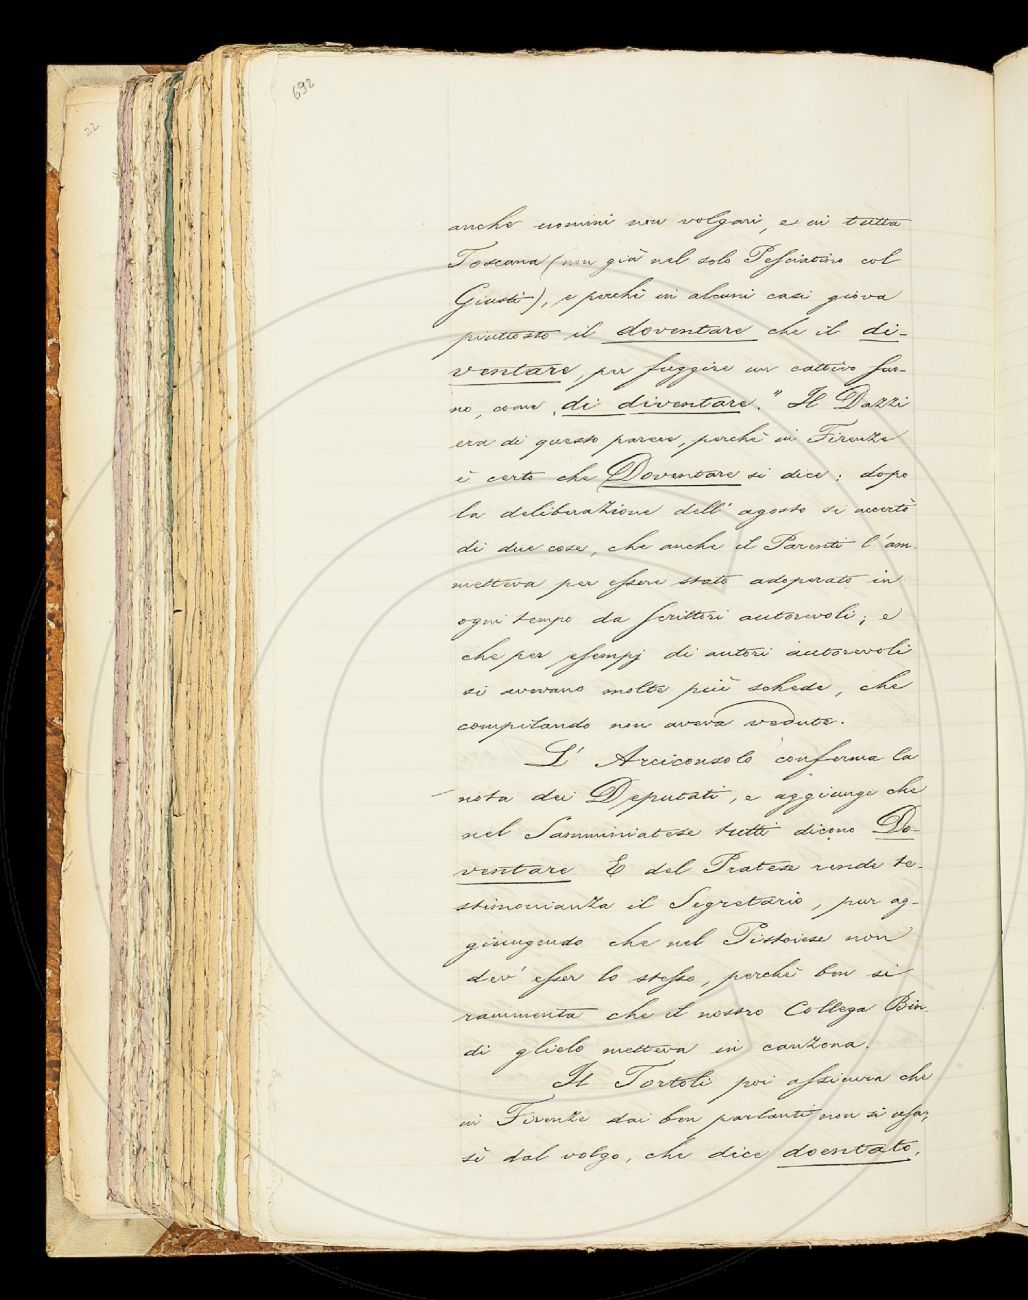 692
22
anche uomini non volgari, e in tutta
Toscana (non già nel solo Pesciatino col
Giusti), e perchè in alcuni casi giova
piuttosto il doventare che il di-
ventare, per fuggire un cattivo suo-
no, come di diventare." Il Dazzi
era di questo parere, perchè in Firenze
è certo che Doventare si dice: dopo
la deliberazione dell' agosto si accertò
di due cose, che anche il Parenti l'am-
metteva per essere stato adoperato in
ogni tempo da scrittori autorevoli; e
che per esempj di autori autorevoli
si avevano molte più schede, che
compilando non aveva vedute.
L' Arciconsolo conferma la
nota dei Deputati, e aggiunge che
nel Samminiatese tutti dicono Do-
ventare. E del Pratese rende te-
stimonianza il Segretario, pur ag-
giungendo che nel Pistoiese non
dev' esser lo stesso, perchè ben si
rammenta che il nostro Collega Bin-
di glielo metteva in canzona.
Il Tortoli poi assicura che
in Firenze dai ben parlanti non si usa;
sì dal volgo, che dice doentato,